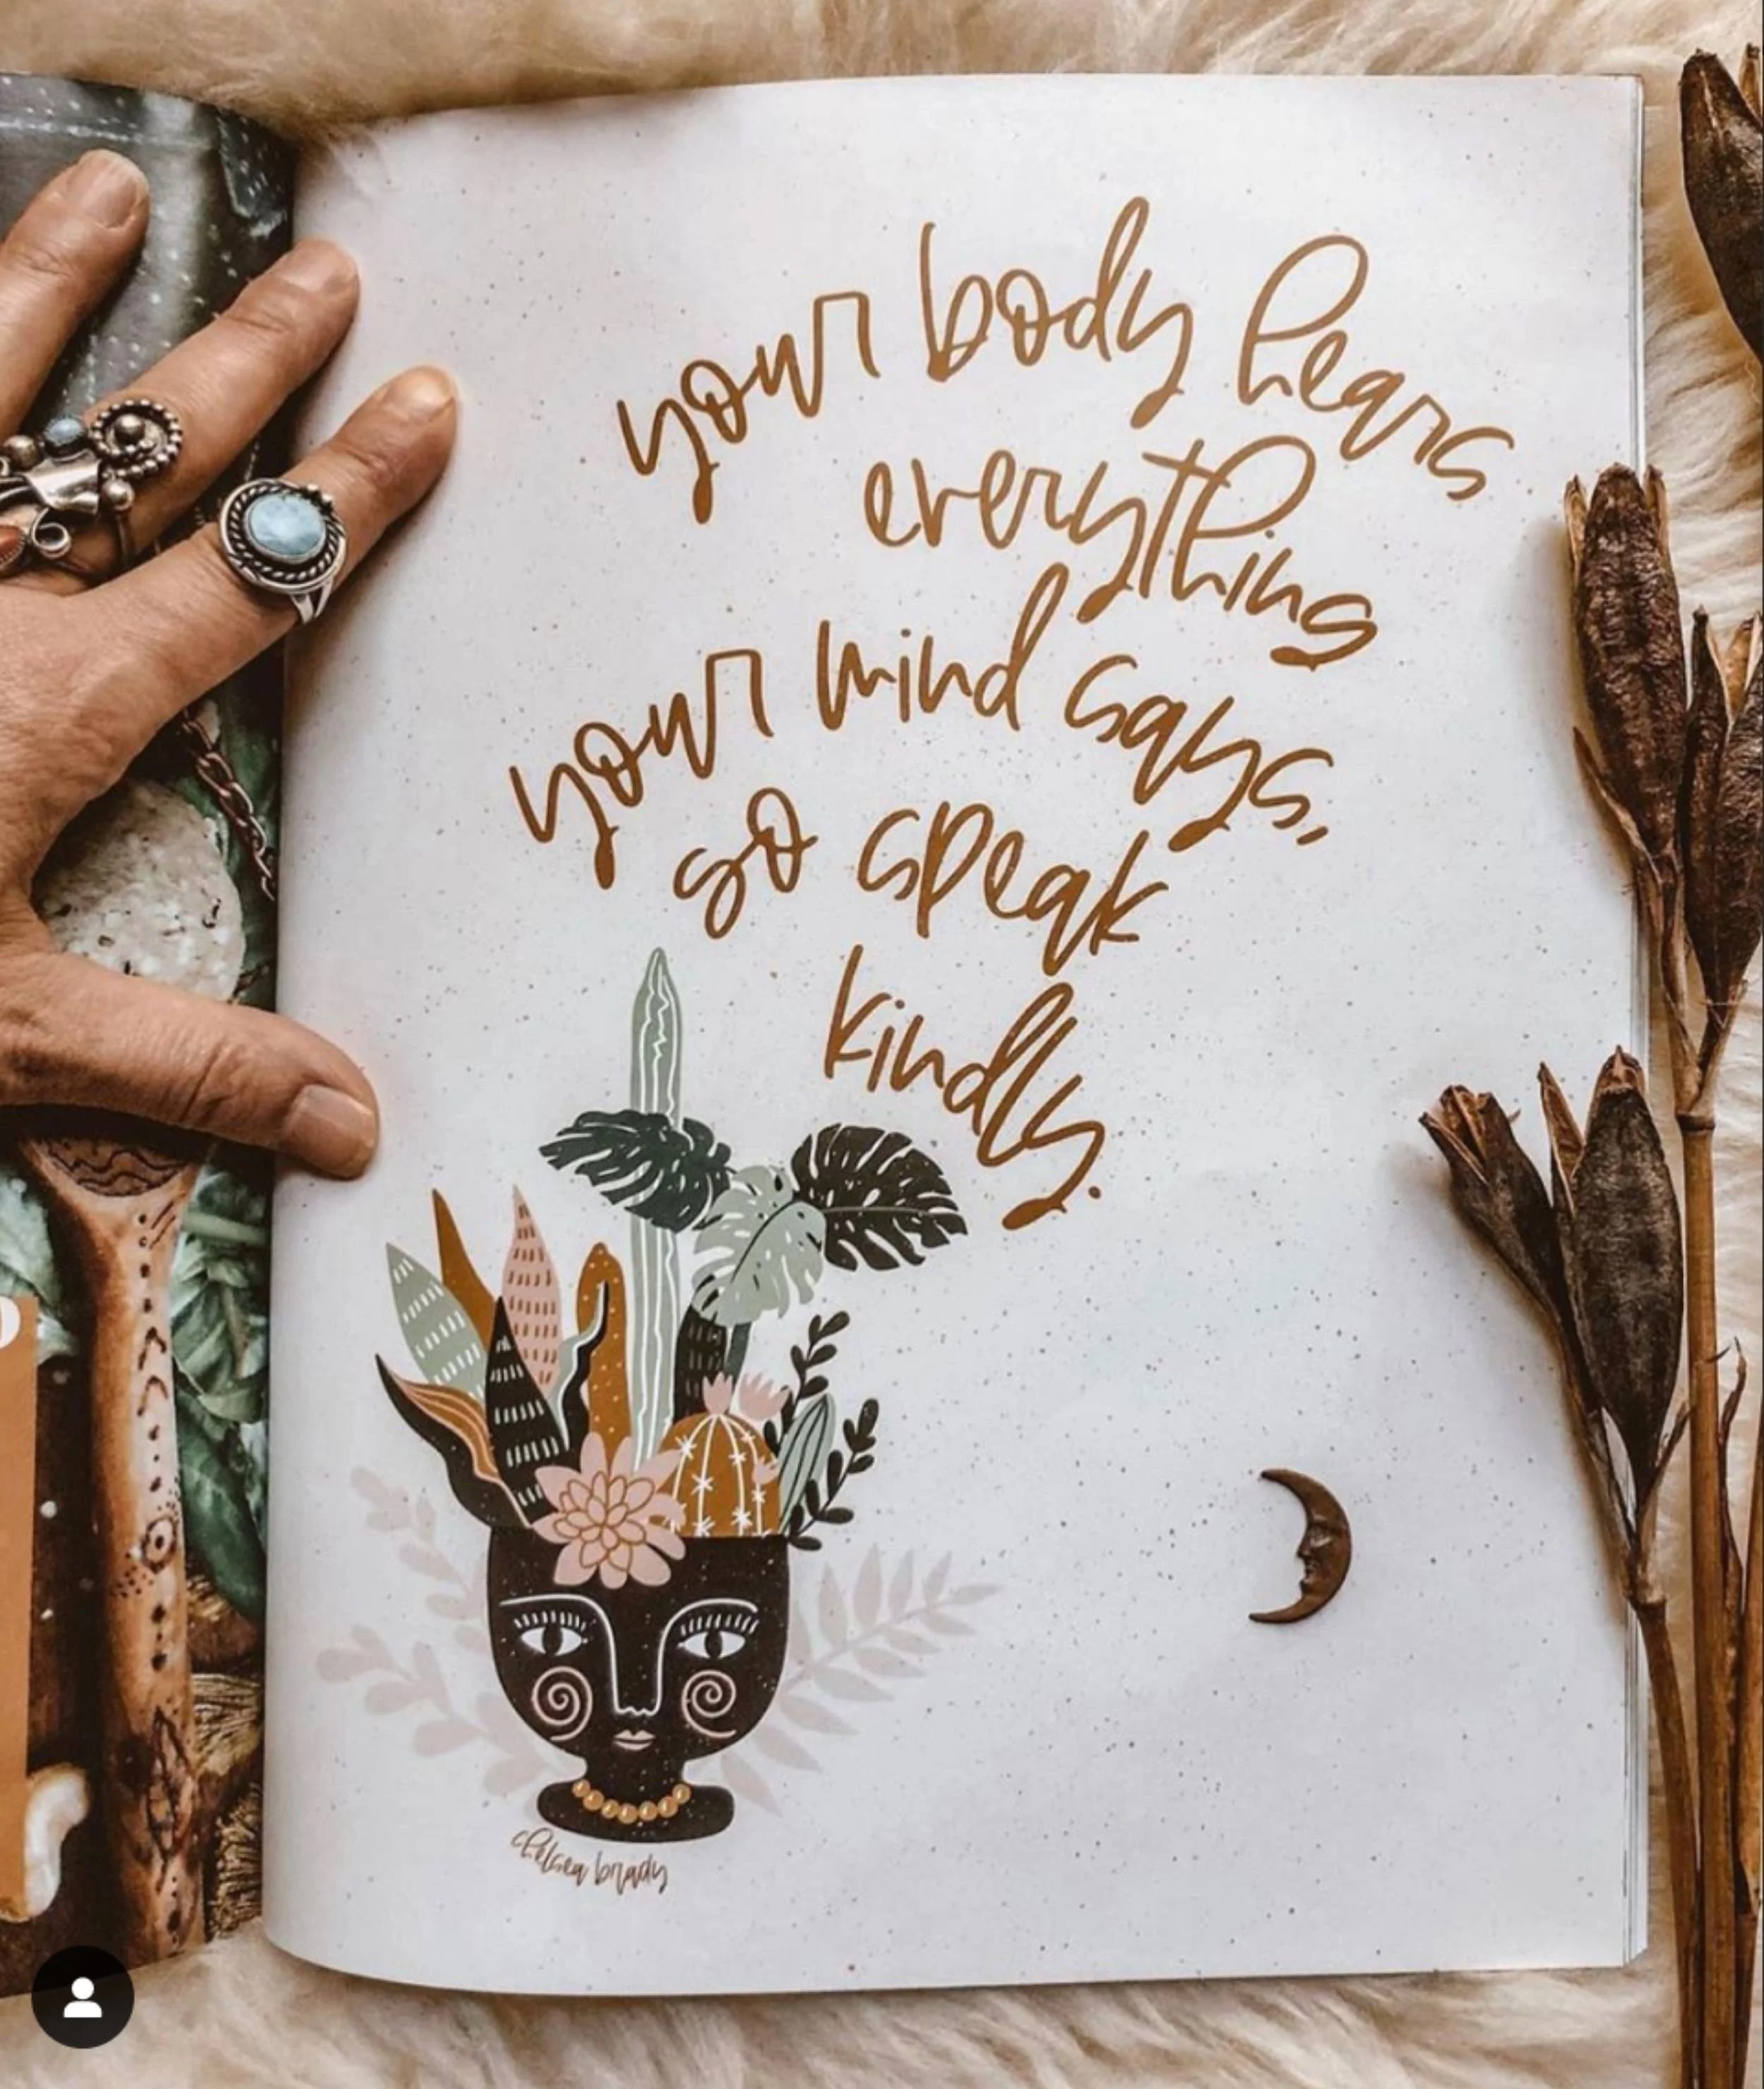 your body hears
everything
your mind says,
so speak
kindly.
chelsea brady